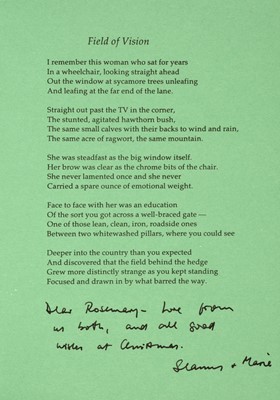 Field of Vision
I remember this woman who sat for years
In a wheelchair, looking straight ahead
Out the window at sycamore trees unleafing
And leafing at the far end of the lane.
Straight out past the TV in the corner,
The stunted, agitated hawthorn bush,
The same small calves with their backs to wind and rain,
The same acre of ragwort, the same mountain.
She was steadfast as the big window itself.
Her brow was clear as the chrome bits of the chair.
She never lamented once and she never
Carried a spare ounce of emotional weight.
Face to face with her was an education
Of the sort you got across a well-braced gate —
One of those lean, clean, iron, roadside ones
Between two whitewashed pillars, where you could see
Deeper into the country than you expected
And discovered that the field behind the hedge
Grew more distinctly strange as you kept standing
Focused and drawn in by what barred the way.
Dear Rosemary – Love from
us both, and all good
wishes at Christmas.
Seamus + Marie